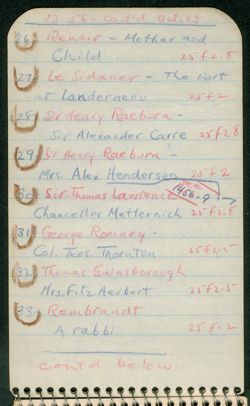 13-56- cont'd Oct.23
26. Renoir - Mother and
Child 25 f 2.8
27. Le Sidaner - The Port
at Landerneau 25 f 2
28. Sir Henry Raeburn -
Sir Alexander Carre 25 f 2.8
29. Sir Henry Raeburn -
Mrs. Alex Henderson 25 f 2
30. Sir Thomas Lawrence see
1456-9
Chancellor Metternich 25 f 2.8
31. George Romney -
Col. Thos. Thornton 25 f 2.5
32. Thomas Gainsborough
Mrs. Fitz Herbert 25 f 2.5
33. Rembrandt
A rabbi 25 f 2
cont'd below